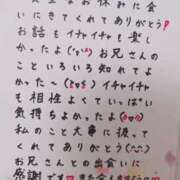 なお休みに会
いにきてくれてありがとう!
お話もイチャイチャも楽し
かったよ(^o^)お兄さんの
こといろいろ知れてよ
かった～(≧o≦)イチャイチャ
も相性よくていっぱい
気持ちよかったよ
私のこと大事に扱って
くれてありがとう(^-^)
お兄さんとの出会いに
感謝です